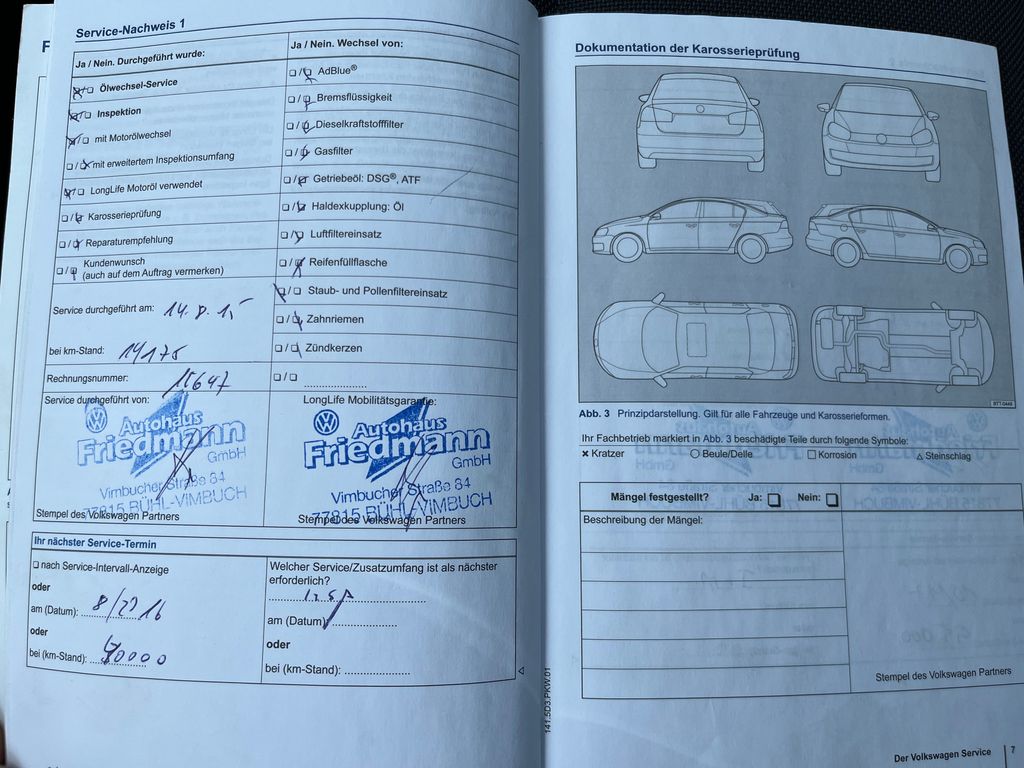 Service-Nachweis 1
Ja / Nein. Durchgeführt wurde:
Ölwechsel-Service
Inspektion
mit Motorölwechsel
mit erweitertem Inspektionsumfang
LongLife Motoröl verwendet
Karosserieprüfung
Reparaturempfehlung
Kundenwunsch
(auch auf dem Auftrag vermerken)
Service durchgeführt am: 14.8.15
bei km-Stand: 14175
Rechnungsnummer: 15647
Service durchgeführt von:
Autohaus
Friedmann
GmbH
Vimbucher Straße 84
77815 BÜHL-VIMBUCH
Stempel des Volkswagen Partners
Ja / Nein. Wechsel von:
AdBlue®
Bremsflüssigkeit
Dieselkraftstofffilter
Gasfilter
Getriebeöl: DSG®, ATF
Haldexkupplung: Öl
Luftfiltereinsatz
Reifenfüllflasche
Staub- und Pollenfiltereinsatz
Zahnriemen
Zündkerzen
LongLife Mobilitätsgarantie:
Autohaus
Friedmann
GmbH
Vimbucher Straße 84
77815 BÜHL-VIMBUCH
Stempel des Volkswagen Partners
Ihr nächster Service-Termin
nach Service-Intervall-Anzeige
oder
am (Datum): 8/2016
oder
bei (km-Stand): 40000
Welcher Service/Zusatzumfang ist als nächster
erforderlich?
am (Datum):
oder
bei (km-Stand):
141.5D3.PKW.01
Dokumentation der Karosserieprüfung
BTT-0449
Abb. 3 Prinzipdarstellung. Gilt für alle Fahrzeuge und Karosserieformen.
Ihr Fachbetrieb markiert in Abb. 3 beschädigte Teile durch folgende Symbole:
Kratzer Beule/Delle Korrosion Steinschlag
Mängel festgestellt? Ja: Nein:
Beschreibung der Mängel:
Stempel des Volkswagen Partners
Der Volkswagen Service 7